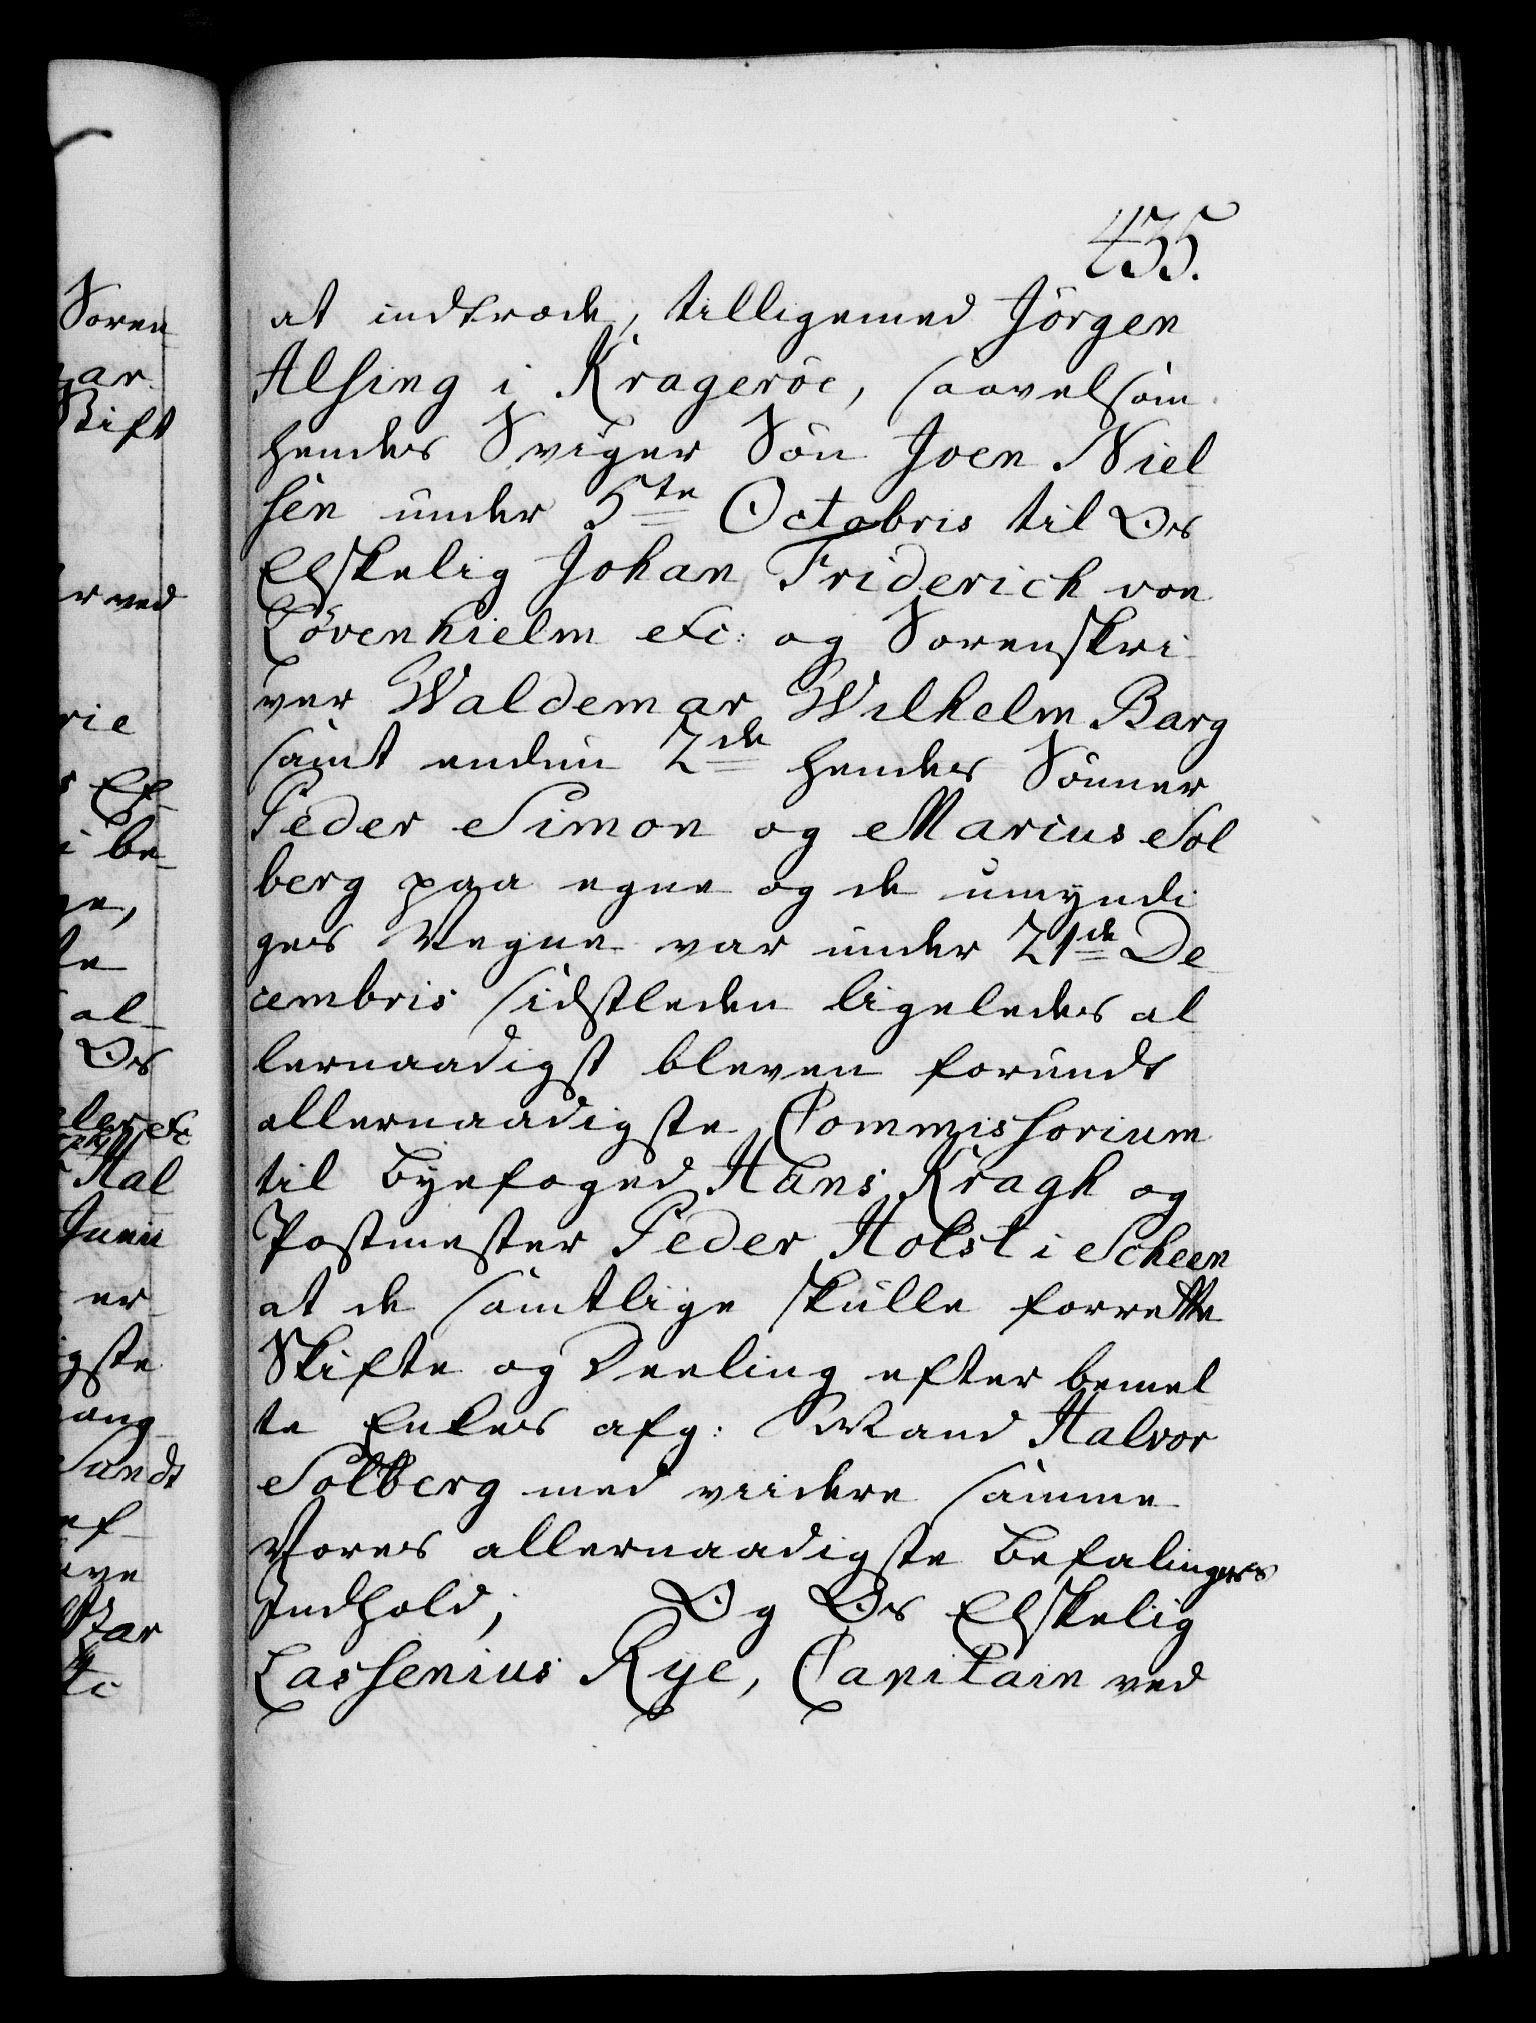 435.
at indtræde, tilligemed Jörgen
Alsing i Krageröe, saavelsom
hendes Sviger Sön Joen Niel
sen under 5te Octobris til Os
Elskelig Johan Friderich von
Lövenhielm etc: og Sorenskri
ver Waldemar Wilhelm Barg
samt endnu 2de hendes Sönner
Peder Simon og Marius Sol
berg paa egne og de umyndi
ges Vegne var under 21de De
cembris sidstleden ligeledes al
lernaadigst bleven forundt
allernaadigste Commissorium
til Byefoged Hans Kragh og
Postmester Peder Holst i Scheen
at de samtlige skulle forrette
Skifte og Deeling efter bemel
te Enkes afg: Mand Halvor
Solberg med viidere samme
Vores allernaadigste Befalingers
Indhold; Og Os Elskelig
Cassenius Rye, Capitain ved